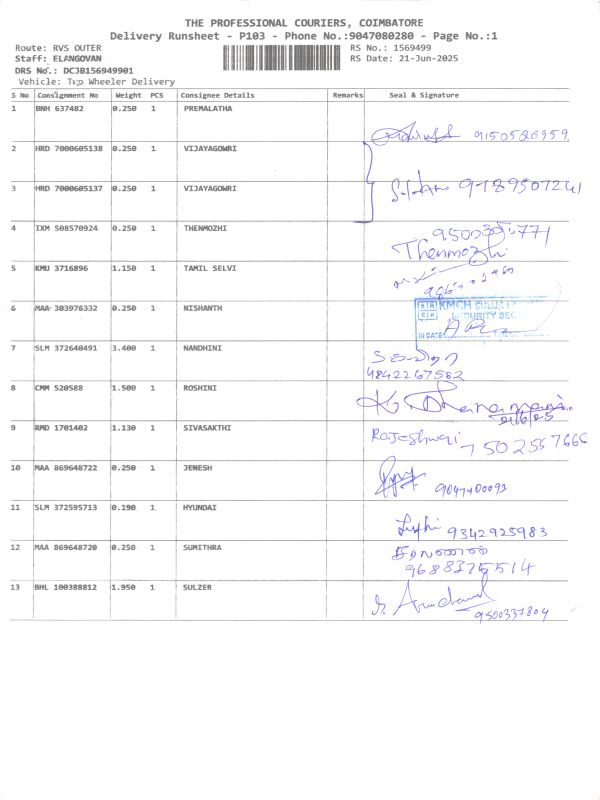 THE PROFESSIONAL COURIERS, COIMBATORE
Delivery Runsheet - P103 - Phone No.:9047080280 - Page No.:1
Route: RVS OUTER RS No.: 1569499
Staff: ELANGOVAN RS Date: 21-Jun-2025
DRS No.: DCJB156949901
Vehicle: Two Wheeler Delivery
S No Consignment No Weight PCS Consignee Details Remarks Seal & Signature
1 BNH 637482 0.250 1 PREMALATHA
9150526959
2 HRD 7000605138 0.250 1 VIJAYAGOWRI
3 HRD 7000605137 0.250 1 VIJAYAGOWRI
9789507241
4 IXM 508570924 0.250 1 THENMOZHI
Thenmozhi
5 KMU 3716896 1.150 1 TAMIL SELVI
6 MAA 303976332 0.250 1 NISHANTH
KMCH
SECURITY
IN DATE
7 SLM 372640491 3.400 1 NANDHINI
9842267582
8 CMM 520588 1.500 1 ROSHINI
21/6/25
9 RMD 1701402 1.130 1 SIVASAKTHI
Rajeshwari
7502557666
10 MAA 869648722 0.250 1 JENESH
9047400093
11 SLM 372595713 0.190 1 HYUNDAI
9342925983
12 MAA 869648720 0.250 1 SUMITHRA
9688375514
13 BHL 100388812 1.950 1 SULZER
9500337804